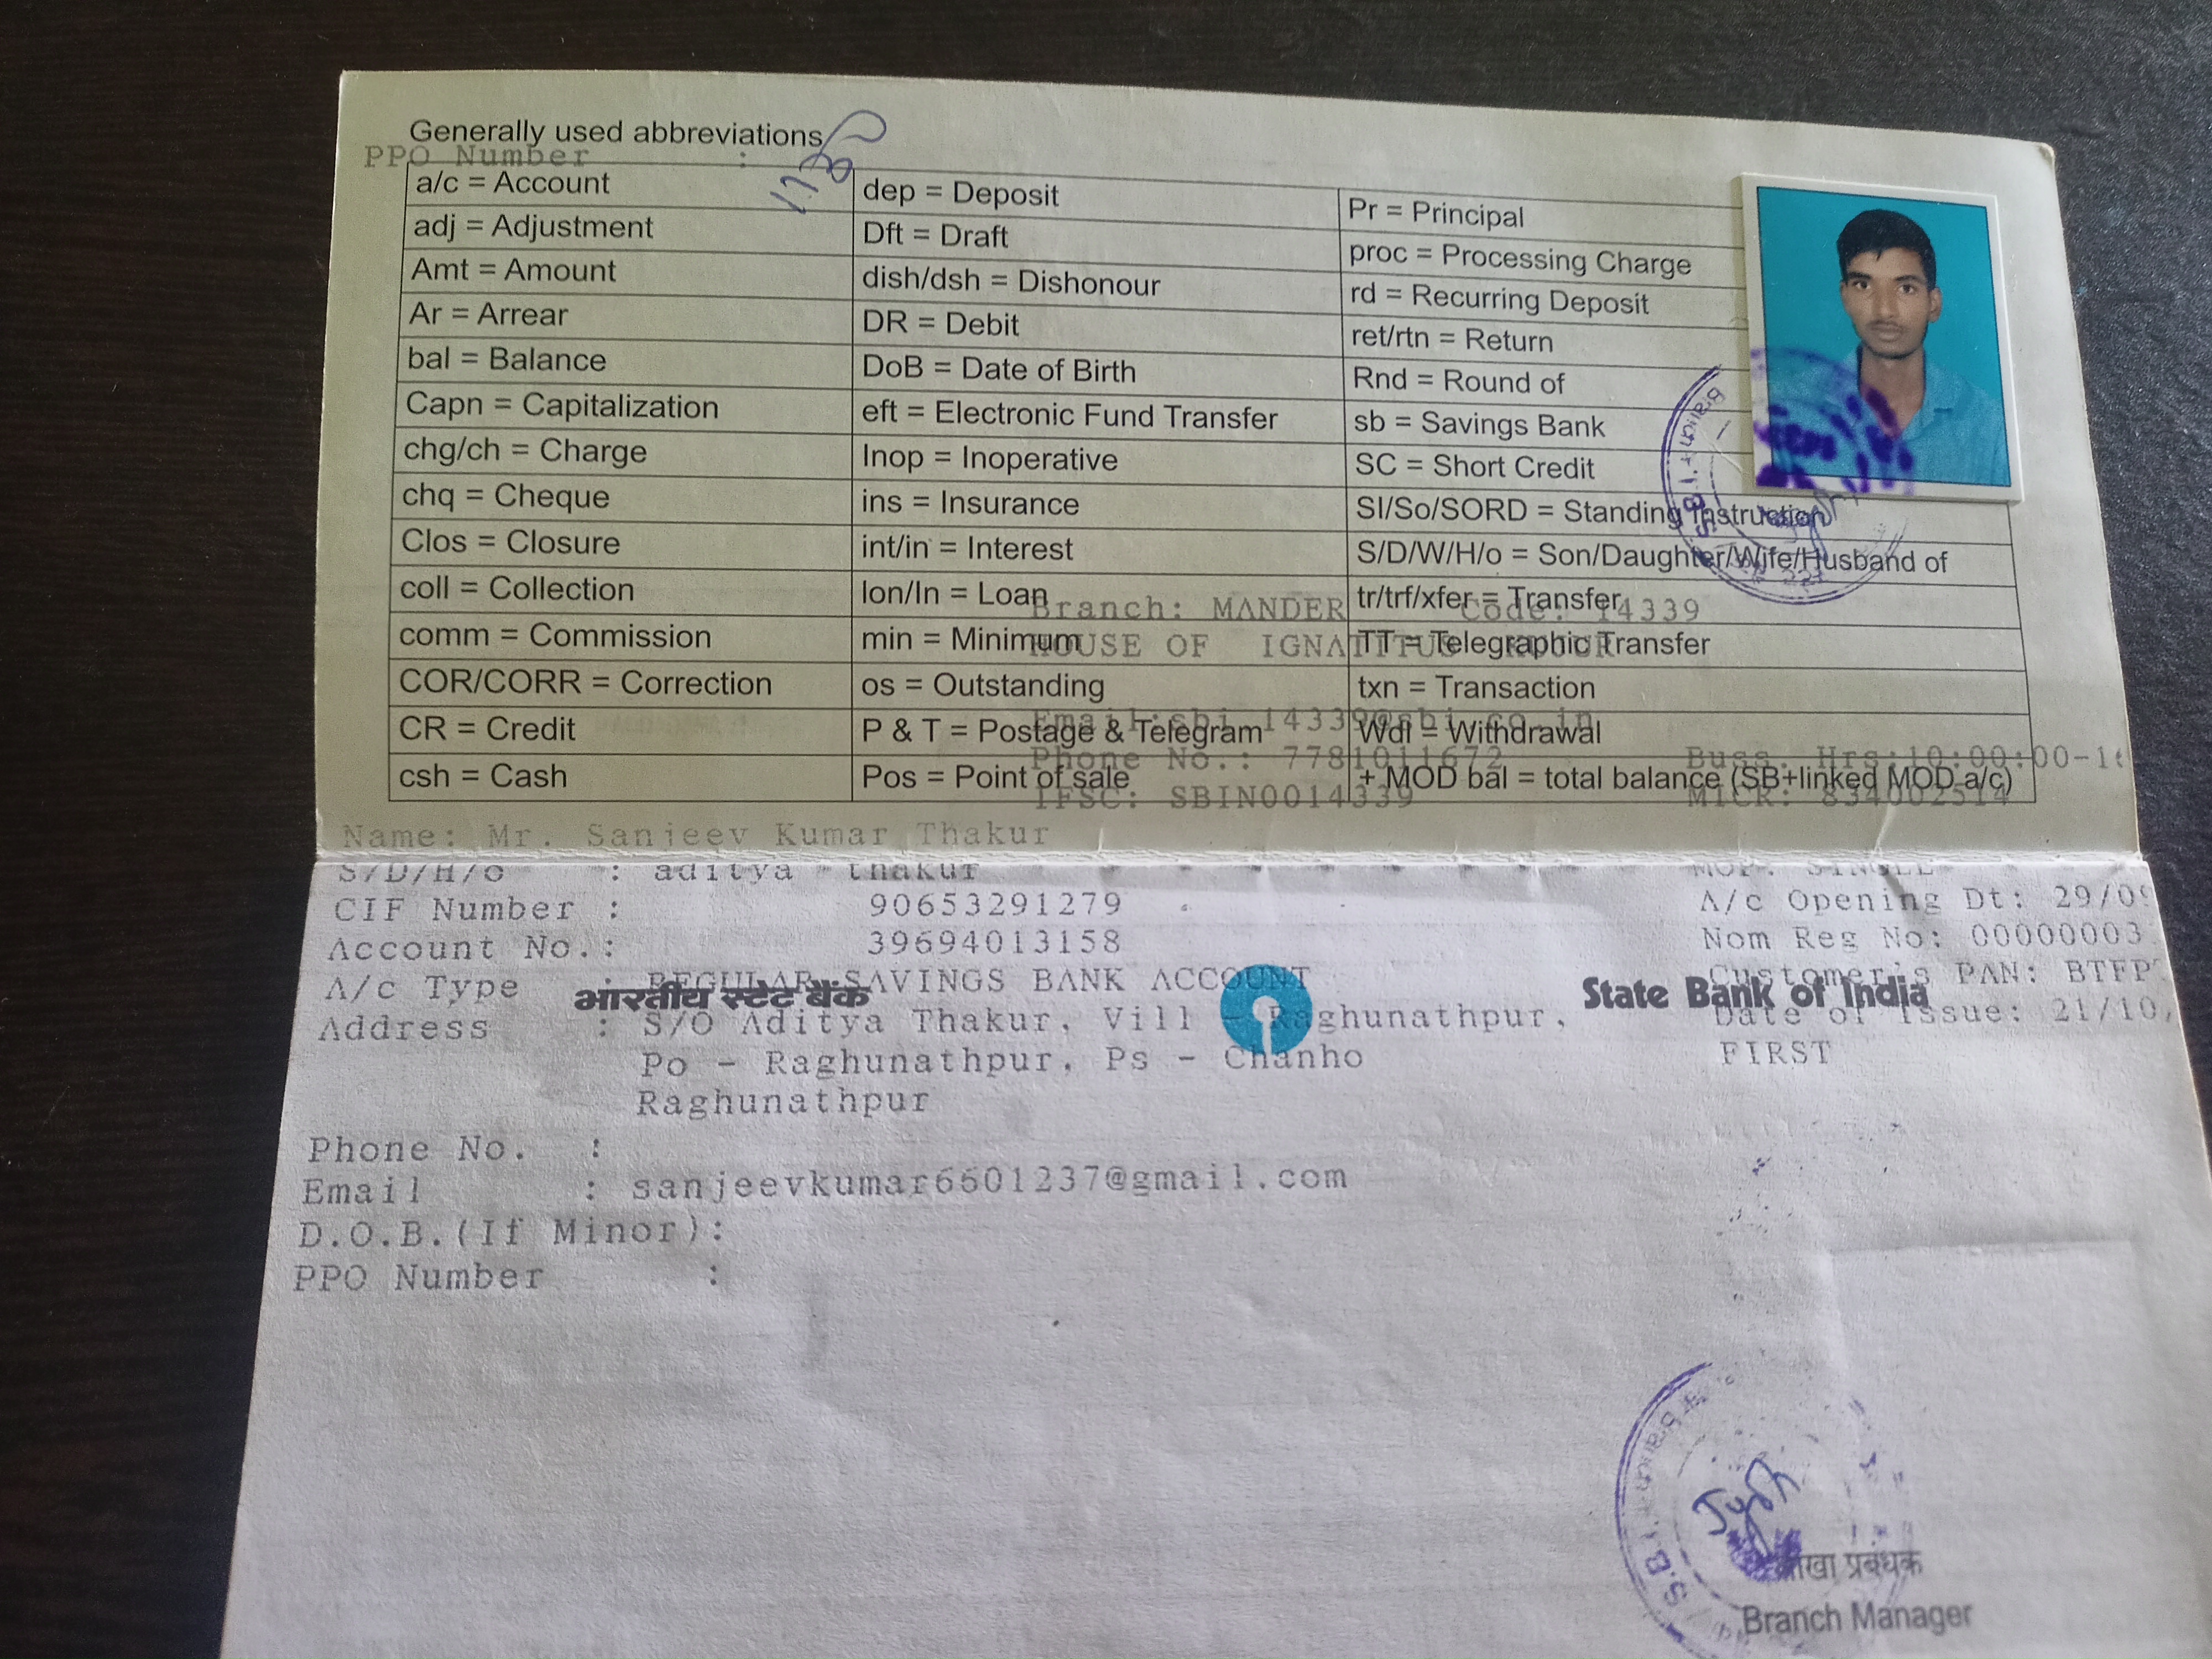 Generally used abbreviations
PPO Number :
a/c = Account
adj = Adjustment
Amt = Amount
Ar = Arrear
bal = Balance
Capn = Capitalization
chg/ch = Charge
chq = Cheque
Clos = Closure
coll = Collection
comm = Commission
COR/CORR = Correction
CR = Credit
csh = Cash
dep = Deposit
Dft = Draft
dish/dsh = Dishonour
DR = Debit
DoB = Date of Birth
eft = Electronic Fund Transfer
Inop = Inoperative
ins = Insurance
int/in = Interest
lon/ln = Loan
min = Minimum
os = Outstanding
P & T = Postage & Telegram
Pos = Point of sale
Pr = Principal
proc = Processing Charge
rd = Recurring Deposit
ret/rtn = Return
Rnd = Round of
sb = Savings Bank
SC = Short Credit
SI/So/SORD = Standing Instruction
S/D/W/H/o = Son/Daughter/Wife/Husband of
tr/trf/xfer = Transfer
TT = Telegraphic Transfer
txn = Transaction
Wdl = Withdrawal
+ MOD bal = total balance (SB+linked MOD a/c)
Branch: MANDER Code: 14339
HOUSE OF IGNATITUS
Email:sbi.14339@sbi.co.in
Phone No.: 7781011672 Buss. Hrs:10:00:00-1
IFSC: SBIN0014339 MICR: 834002514
Name: Mr. Sanjeev Kumar Thakur
S/D/H/o : aditya thakur MOP: SINGLE
CIF Number : 90653291279 A/c Opening Dt: 29/09
Account No.: 39694013158 Nom Reg No: 00000003
A/c Type : REGULAR SAVINGS BANK ACCOUNT Customer's PAN: BTFP
भारतीय स्टेट बैंक State Bank of India
Address : S/O Aditya Thakur, Vill - Raghunathpur, Date of Issue: 21/10/
Po - Raghunathpur, Ps - Chanho FIRST
Raghunathpur
Phone No. :
Email : sanjeevkumar6601237@gmail.com
D.O.B.(If Minor):
PPO Number :
S.B.I.
शाखा प्रबंधक
Branch Manager